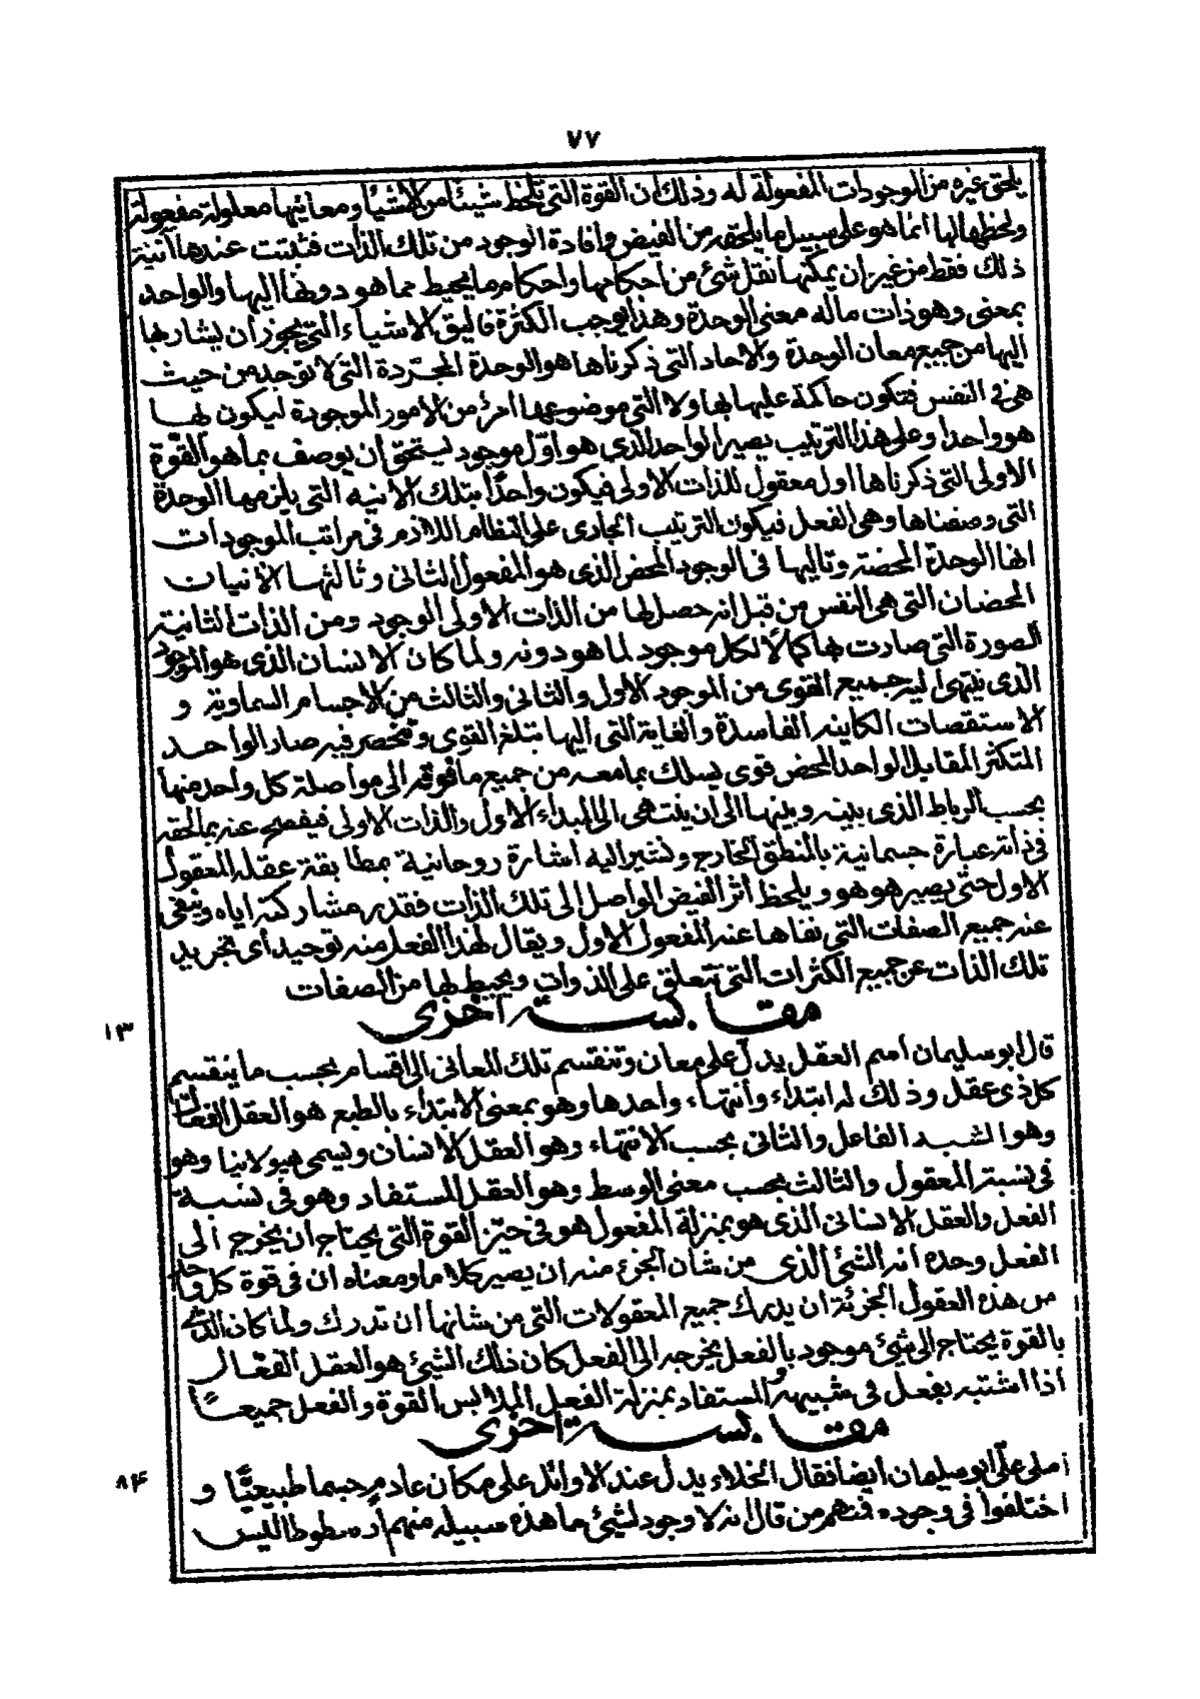 ٧٧
يلحق غيره من الوجودات المفعولة له وذلك ان القوة التى تلحظ شيئا من الاشيا ومعانيها معلولة مفعولة
ولحظها لها انما هو على سبيل ما يلحقه من الفيض وافادة الوجود من تلك الذات فثبتت عندها آنية
ذلك فقط من غير ان يمكنها نقل شئ من احكامها واحكام ما يحيط مما هو دونها اليها والواحد
بمعنى وهو ذات ماله معنى الوحدة وهذا يوجب الكثرة فاليق الاشياء التى يجوز ان يشار بها
اليها من جميع معان الوحدة والاحاد التى ذكرناها هو الوحدة المجردة التى لا توجد من حيث
هى فى النفس فتكون حاكمة عليها بها ولا التى موضوعها امر من الامور الموجودة ليكون لها
هو واحدا وعلى هذا الترتيب يصير الواحد الذى هو اول موجود يستحق ان يوصف بما هو القوة
الاولى التى ذكرناها اول معقول للذات الاولى فيكون واحدا بتلك الانيه التى يلزمها الوحدة
التى وصفناها وهى الفعل فيكون الترتيب الجارى على النظام اللازم فى مراتب الموجودات
انها الوحدة المحضة وتاليها فى الوجود المحض الذى هو المفعول الثانى وثالثها الأنيات
المحضان التى هى النفس من قبل انه حصل لها من الذات الاولى الوجود ومن الذات الثانية
الصورة التى صارت بها كمالا لكل موجود لما هو دونه ولما كان الانسان الذى هو الموجود
الذى ينتهى اليه جميع القوى من الموجود الاول والثانى والثالث من الاجسام السماوية و
الاستقصات الكاينه الفاسدة والغاية التى اليها تبلغ القوى وتنحصر فيه صار الواحد
المتكثر المقابل الواحد المحض قوى يسلك بما معه من جميع ما فوقه الى مواصلة كل واحد منها
بحسب الرباط الذى بينه وبينها الى ان ينتهى الى المبداء الاول والذات الاولى فيفصح عنه بما لحقه
فى ذاته عبارة جسمانية بالمنطق الخارج وتشير اليه اشارة روحانية بمطابقة عقله المعقول
الاول حتى يصير هو هو ويلحظ أثر الفيض الواصل الى تلك الذات فقدر مشاركته اياه وينفى
عنه جميع الصفات التى نفاها عنه المفعول الاول ويقال لهذا الفعل منه توحيد اى تجريد
تلك الذات عن جميع الكثرات التى تتعلق على الذوات ويحيط لها من الصفات
مقابسة اخرى
قال ابو سليمان اسم العقل يدل على معان وتنقسم تلك المعانى الى اقسام بحسب ما ينقسم
كل ذى عقل وذلك له ابتداء وانتهاء واحدها وهو بمعنى الابتداء بالطبع هو العقل الفعال
وهو الشبه الفاعل والثانى بحسب الانتهاء وهو العقل الانسان ويسمى هيولانيا وهو
فى نسبة المعقول والثالث بحسب معنى الوسط وهو العقل المستفاد وهو فى نسبة
الفعل والعقل الانسانى الذى هو بمنزلة المفعول هو فى حيز القوة التى يحتاج ان يخرج الى
الفعل وحده انه الشئ الذى من شان الجزء منه ان يصير كلا ما ومعناه ان فى قوة كل واحد
من هذه العقول الجزئية ان يدرك جميع المعقولات التى من شانها ان تدرك ولما كان الذى
بالقوة يحتاج الى شئ موجود بالفعل يخرجه الى الفعل كان ذلك الشئ هو العقل الفعال
اذا اشتبه بفعل فى شبيهه والمستفاد بمنزلة الفعل الملابس القوة والفعل جميعا
مقابسة اخرى
املى على ابو سليمان ايضا فقال الخلاء يدل عند الاوائل على مكان عادم جسما طبيعيا و
اختلفوا فى وجوده فمنهم من قال انه لا وجود لشئ ما هذه سبيله منهم ارسطوطاليس